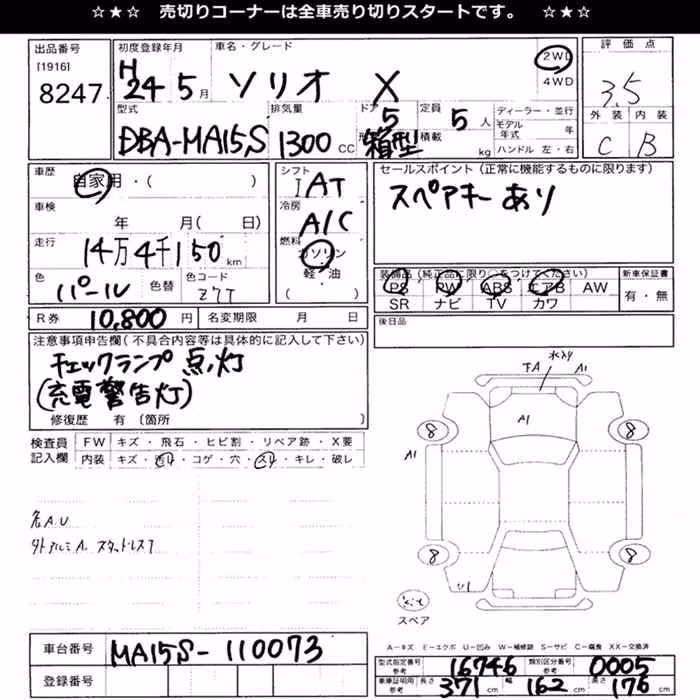 ☆★☆ 売切りコーナーは全車売り切りスタートです。 ☆★☆
出品番号
[1916]
8247
初度登録年月
H24 5月
車名・グレード
ソリオ X
2WD
4WD
評価点
3.5
外装 内装
C B
型式
DBA-MA15S
排気量
1300 CC
ドア 5
箱型
定員 5 人
積載 kg
ディーラー・並行
モデル年式 年
ハンドル 左・右
車歴
自家用・( )
車検
年 月( 日)
走行
14万4千150 km
色
パール 色替
色コード
Z7T
シフト
IAT
冷房
A/C
燃料
ガソリン
軽・油
( )
セールスポイント(正常に機能するものに限ります)
スペアキーあり
装備品(純正品に限り○をつけてください)
PS PW ABS エアB AW
SR ナビ TV カワ
新車保証書
有・無
R券 10,800 円
名変期限 月 日
後日品
注意事項申告欄(不具合内容等は具体的に記入して下さい)
チェックランプ点灯
(充電警告灯)
修復歴 有〔箇所 〕
検査員記入欄
FW キズ・飛石・ヒビ割・リペア跡・X要
内装 キズ・汚れ・コゲ・穴・スレ・キレ・破レ
A1
A1
A1
8
8
8
8
スペア
A-キズ E-エクボ U-凹み W-補修跡 S-サビ C-腐食 XX-交換済
車台番号 MA15S-110073
登録番号
型式指定番号参考 16746
類別区分番号参考 0005
車庫証明用参考 長さ 371 cm 幅 162 cm 高さ 176 cm